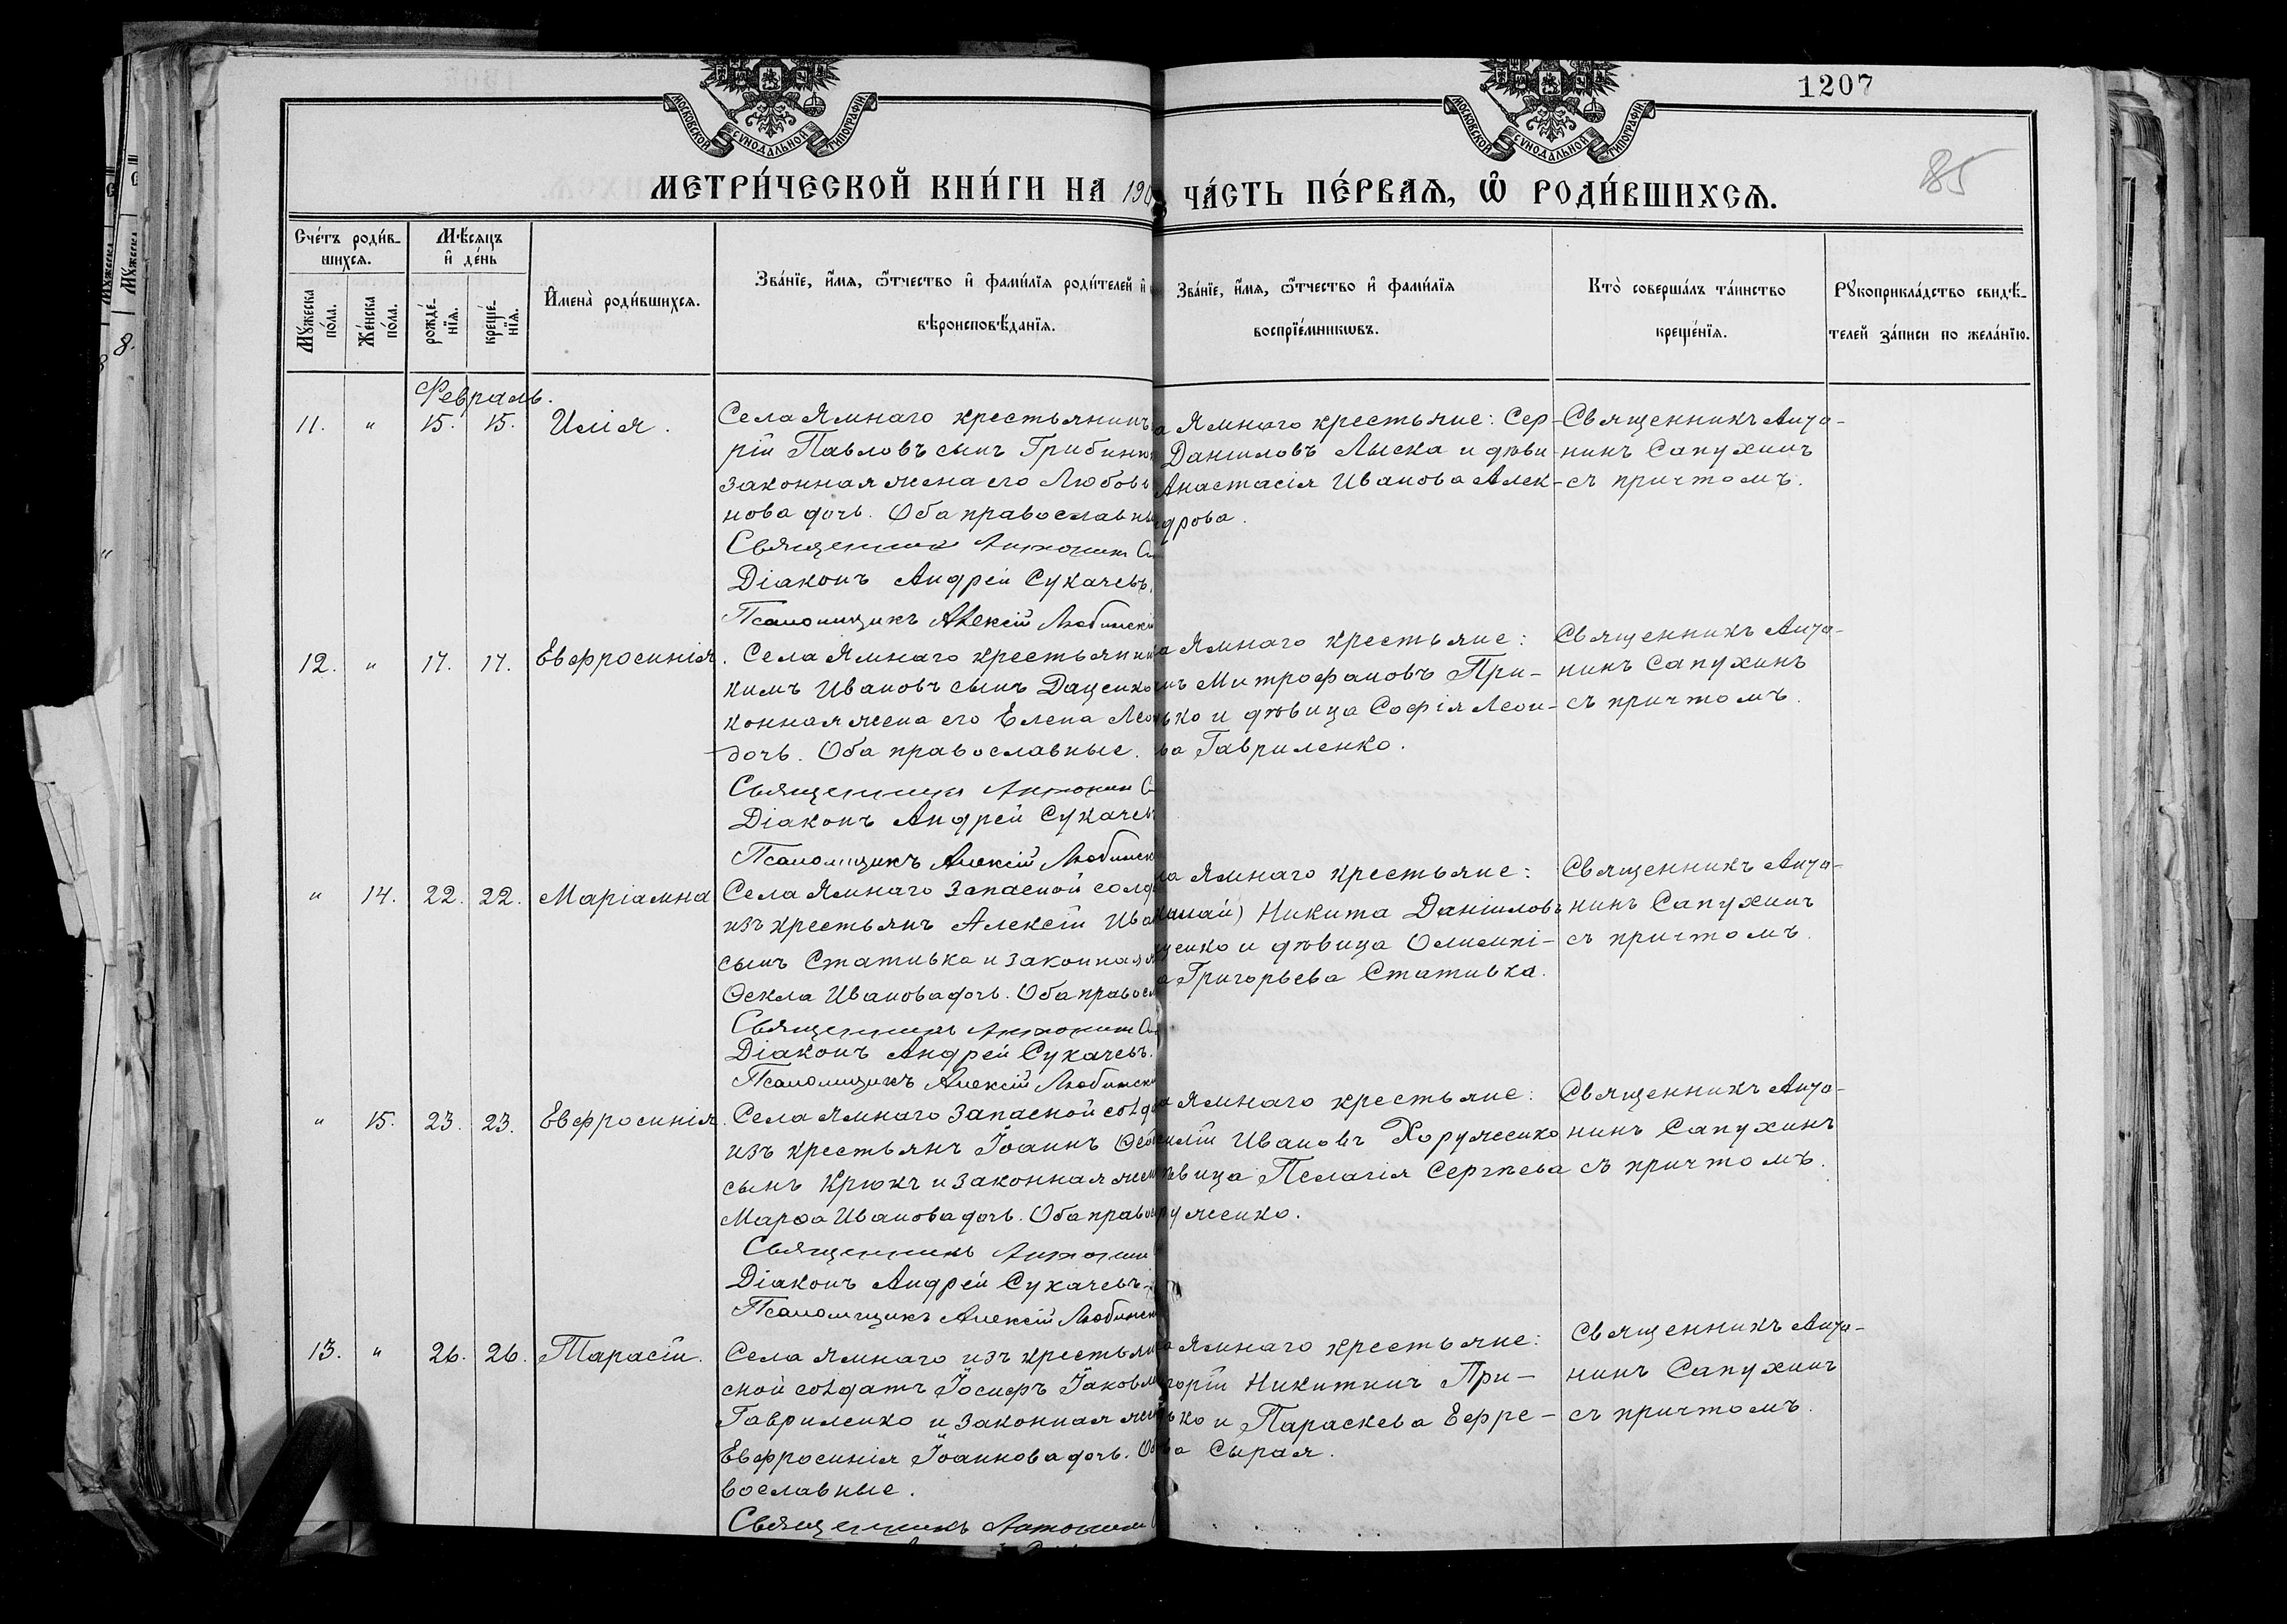 1207
85
МОСКОВСКОЙ СѴНОДАЛЬНОЙ ТИПОГРАФІИ
МОСКОВСКОЙ СѴНОДАЛЬНОЙ ТИПОГРАФІИ
МЕТРИ́ЧЕСКОЙ КНИ́ГИ НА 190
ЧА́СТЬ ПЕ́РВАѦ, Ѡ РОДИ́ВШИХСѦ.
Сче́тъ роди́в-
шихсѧ.
Мѣ́сѧцъ
и де́нь
Мꙋ́жеска
по́ла.
Же́нска
по́ла.
рожде́-
нїѧ.
креще́-
нїѧ.
И҆мена̀ роди́вшихсѧ.
Зва́нїе, и҆́мѧ, ѻ҆́тчество и҆ фами́лїѧ роди́телей и҆
вѣроисповѣ́данїѧ.
Зва́нїе, и҆́мѧ, ѻ҆́тчество и҆ фами́лїѧ
воспрїе́мникѡвъ.
Кто̀ соверша́лъ та́инство
креще́нїѧ.
Рꙋкоприкла́дство свидѣ́-
телей за́писи по жела́нїю.
8.
Февраль.
11. " 15. 15. Илія.
Села Ямнаго крестьянинъ
рій Павловъ сынъ Грибинюк
законная жена его Любовь
нова дочь. Оба православны
Священник Антонин
Діаконъ Андрей Сукачевъ.
Псаломщикъ Алексій Любински
а Ямнаго крестьяне: Сер-
Даниловъ Лыска и дѣви
Анастасія Иванова Алек-
дрова.
Священникъ Анто-
нинъ Сапухинъ
съ причтомъ.
12. " 17. 17. Евфросинія.
Села Ямнаго крестьянин
кимъ Ивановъ сынъ Даценко
конная жена его Елена Лео
дочь. Оба православные.
Священникъ Антонин С
Діаконъ Андрей Сукачев
Псаломщикъ Алексій Любинск
а Ямнаго крестьяне:
инъ Митрофановъ При-
ько и дѣвица Софія Леон-
ва Гавриленко.
Священникъ Анто-
нинъ Сапухинъ
съ причтомъ.
" 14. 22. 22. Маріамна
Села Ямнаго запасной солд
изъ крестьянъ Алексій Ива
сынъ Стативка и законная ж
Ѳекла Иванова дочь. Оба правосл
Священникъ Антонин
Діаконъ Андрей Сукачевъ.
Псаломщикъ Алексій Любинск
ла Ямнаго крестьяне:
Никита Даніиловъ
ценко и дѣвица Олимпі-
а Григорьева Стативка.
Священникъ Анто-
нинъ Сапухинъ
съ причтомъ.
" 15. 23. 23. Евфросинія.
Села Ямнаго запасной солд
изъ крестьянъ Іоаннъ
сынъ Крюкъ и законная жен
Марѳа Иванова дочь. Оба право
Священникъ Антонин
Діаконъ Андрей Сукачевъ
Псаломщикъ Алексій Любинск
а Ямнаго крестьяне:
силій Ивановъ Хоруженко
ѣвица Пелагія Сергѣева
руженко.
Священникъ Анто-
нинъ Сапухинъ
съ причтомъ.
13. " 26. 26. Тарасій.
Села Ямнаго изъ крестьян
сной солдатъ Іосифъ Іаковл
Гавриленко и законная жен
Евфросинія Іоаннова дочь. Об
вославные.
Священникъ Антонин
а Ямнаго крестьяне:
горій Никитинъ При-
ько и Параскева Ефре-
ва Сырая.
Священникъ Анто-
нинъ Сапухинъ
съ причтомъ.